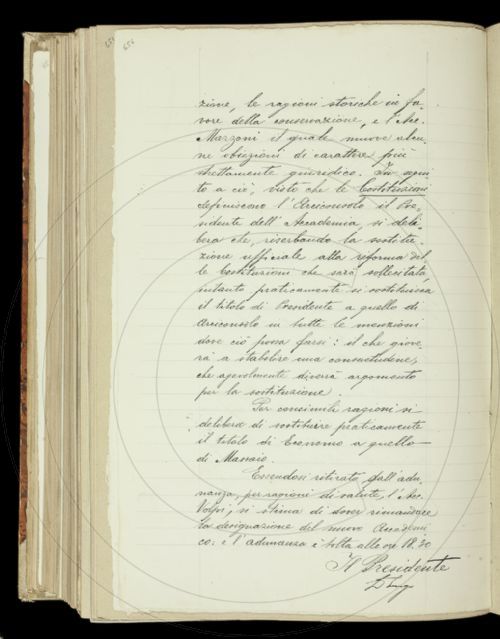 656
zione, le ragioni storiche in fa-
vore della conservazione, e l'Acc.
Marzoni il quale muove alcu-
ne obiezioni di carattere più
strettamente giuridico. In segui-
to a ciò, visto che le Costituzioni
definiscono l'Arciconsolo il Pre-
sidente dell'Accademia, si deli-
bera che, riserbando la sostitu-
zione ufficiale alla riforma del-
le Costituzioni che sarà sollecitata,
intanto praticamente si sostituisca
il titolo di Presidente a quello di
Arciconsolo in tutte le menzioni
dove ciò possa farsi: il che giove-
rà a stabilire una consuetudine,
che agevolmente diverrà argomento
per la sostituzione.
Per consimili ragioni si
delibera di sostituire praticamente
il titolo di Economo a quello
di Massaio.
Essendosi ritirato dall'adu-
nanza, per ragioni di salute, l'Acc.
Volpi, si stima di dover rimandare
la designazione del nuovo Accademi-
co: e l'adunanza è tolta alle ore 18.30
Il Presidente